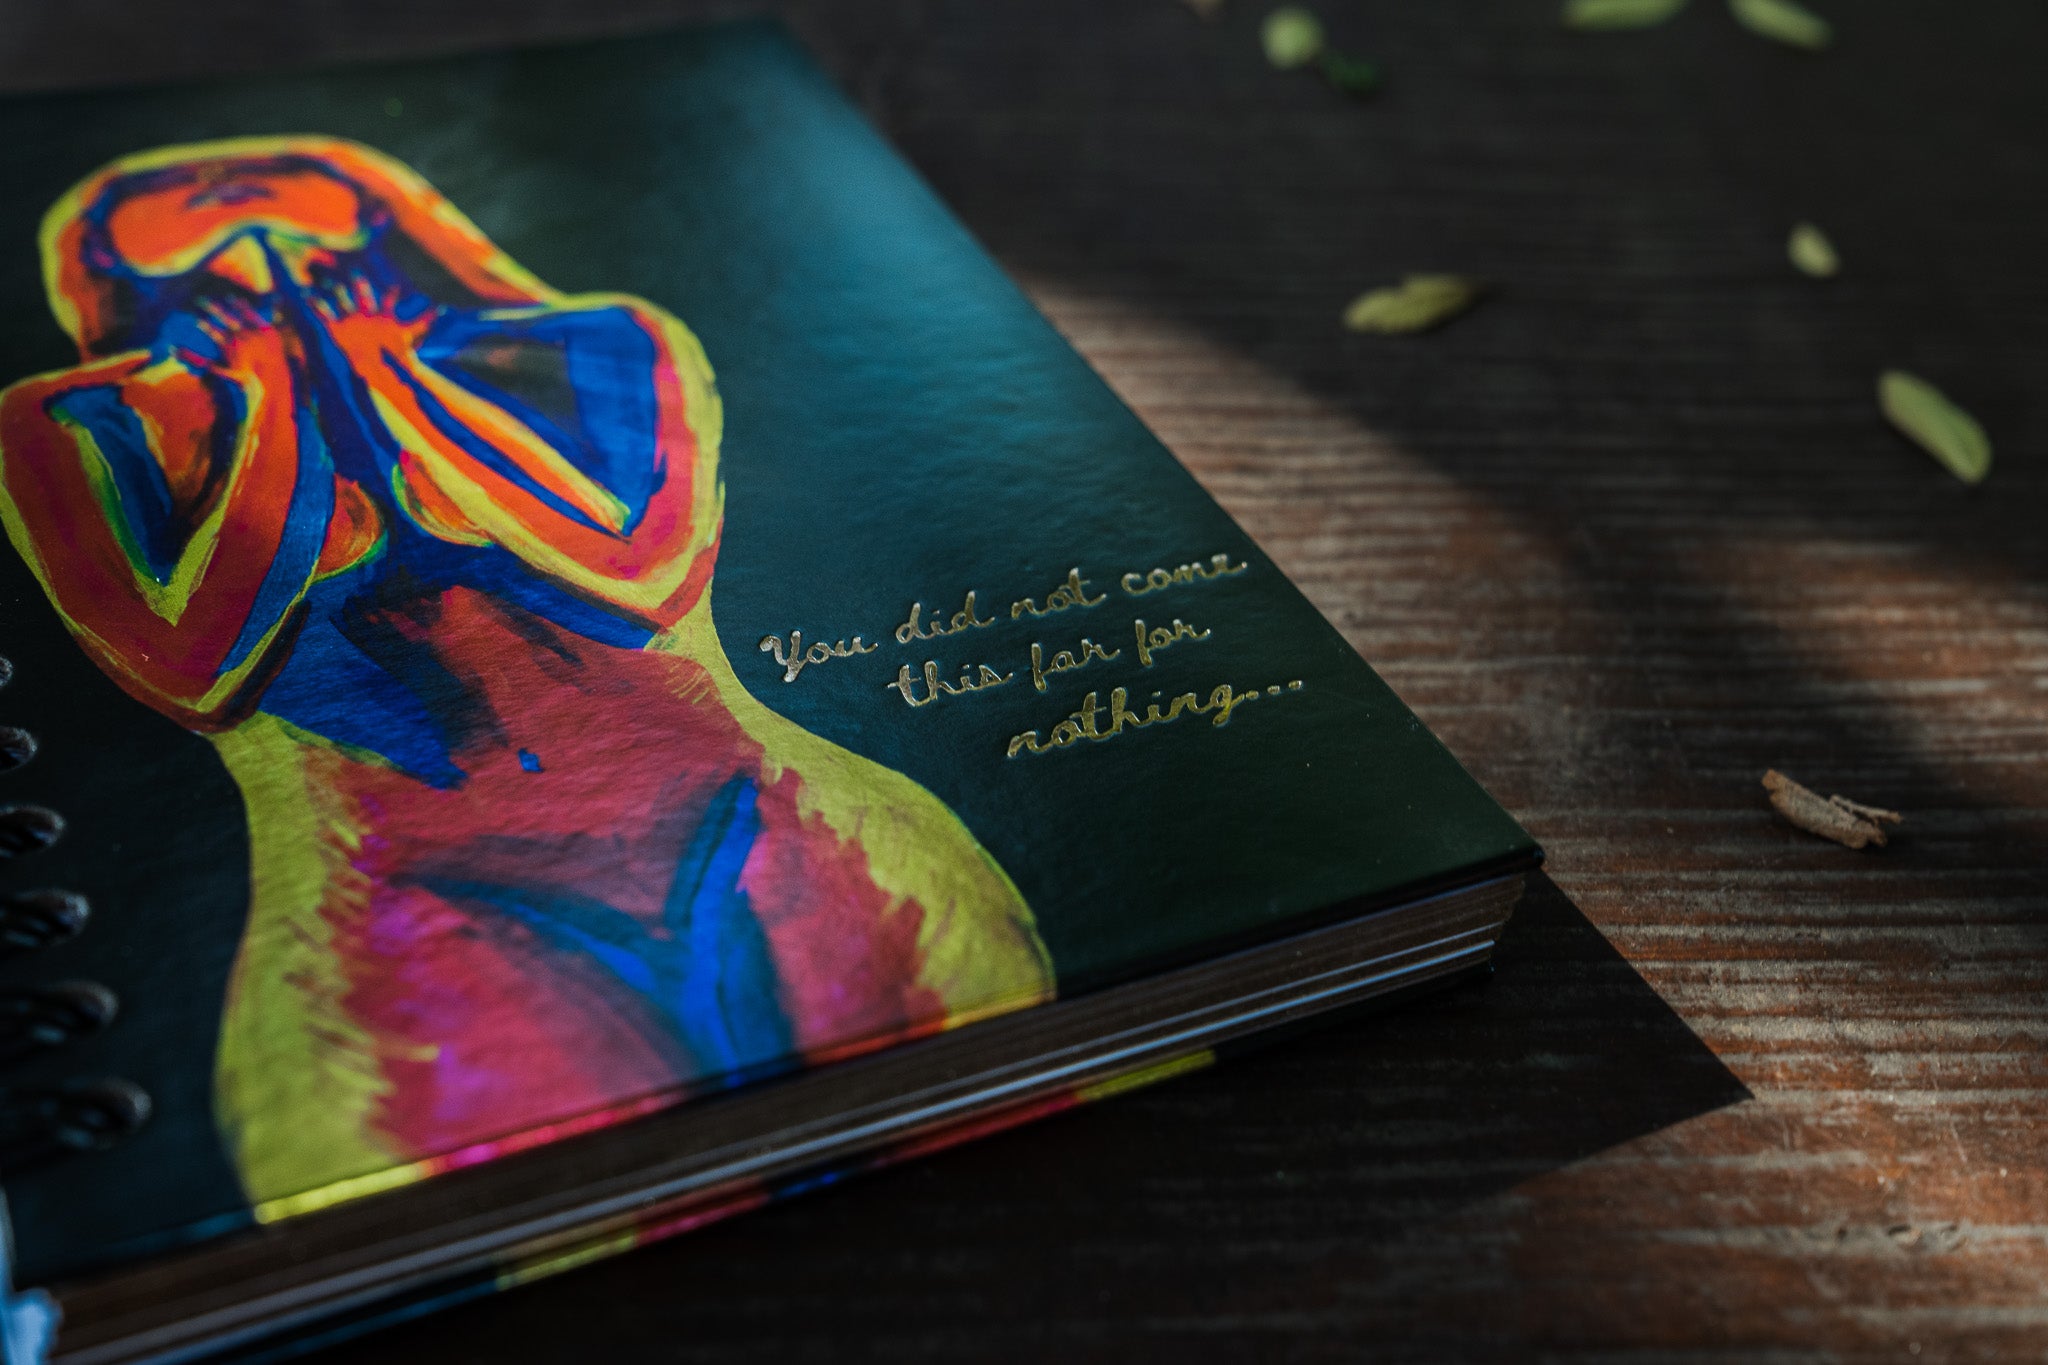 You did not come
this far for
nothing...